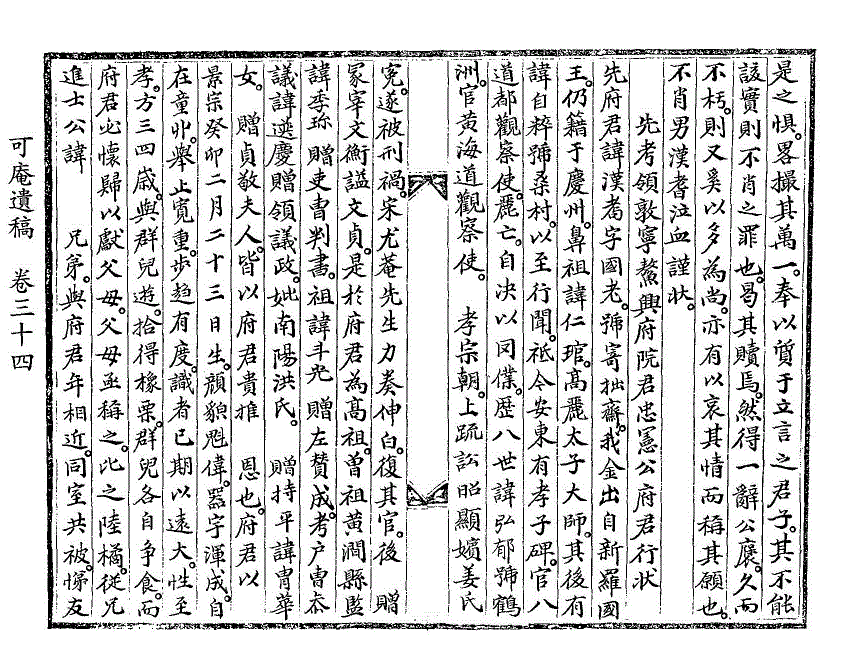 是之惧畧撮其萬一奉以質于立言之君子其不能
該實則不肖之罪也曷其贖焉然得一辭公褒久而
不朽則又奚以多為尚亦有以哀其情而稱其願也
不肖男漢耆泣血謹狀
先考領敦寧鰲興府院君忠憲公府君行狀
先府君諱漢耈字國老號寄拙齋我金出自新羅國
王仍籍于慶州鼻祖諱仁琯高麗太子大師其後有
諱自粹號桑村以至行聞祗今安東有孝子碑官八
道都觀察使麗亡自决以罔僕歷八世諱弘郁號鶴
洲官黃海道觀察使 孝宗朝上疏訟昭顯嬪姜氏
冤遂被刑禍宋尤菴先生力奏伸白復其官後 贈
冢宰文衡謚文貞是於府君為高祖曾祖黃澗縣監
諱季珎贈吏曺判書祖諱斗光贈左贊成考戶曺叅
議諱選慶贈領議政妣南陽洪氏 贈持平諱胄華
女 贈貞敬夫人皆以府君貴推 恩也府君以
景宗癸卯二月二十三日生顏貌魁偉器宇渾成自
在童丱舉止寬重步趍有度識者已期以遠大性至
孝方三四歲與群兒遊拾得橡栗群兒各自争食而
府君必懷歸以獻父母父母亟稱之比之陸橘從兄
進士公諱 兄弟與府君年相近同室共被悌友
可庵遺稿 卷三十四